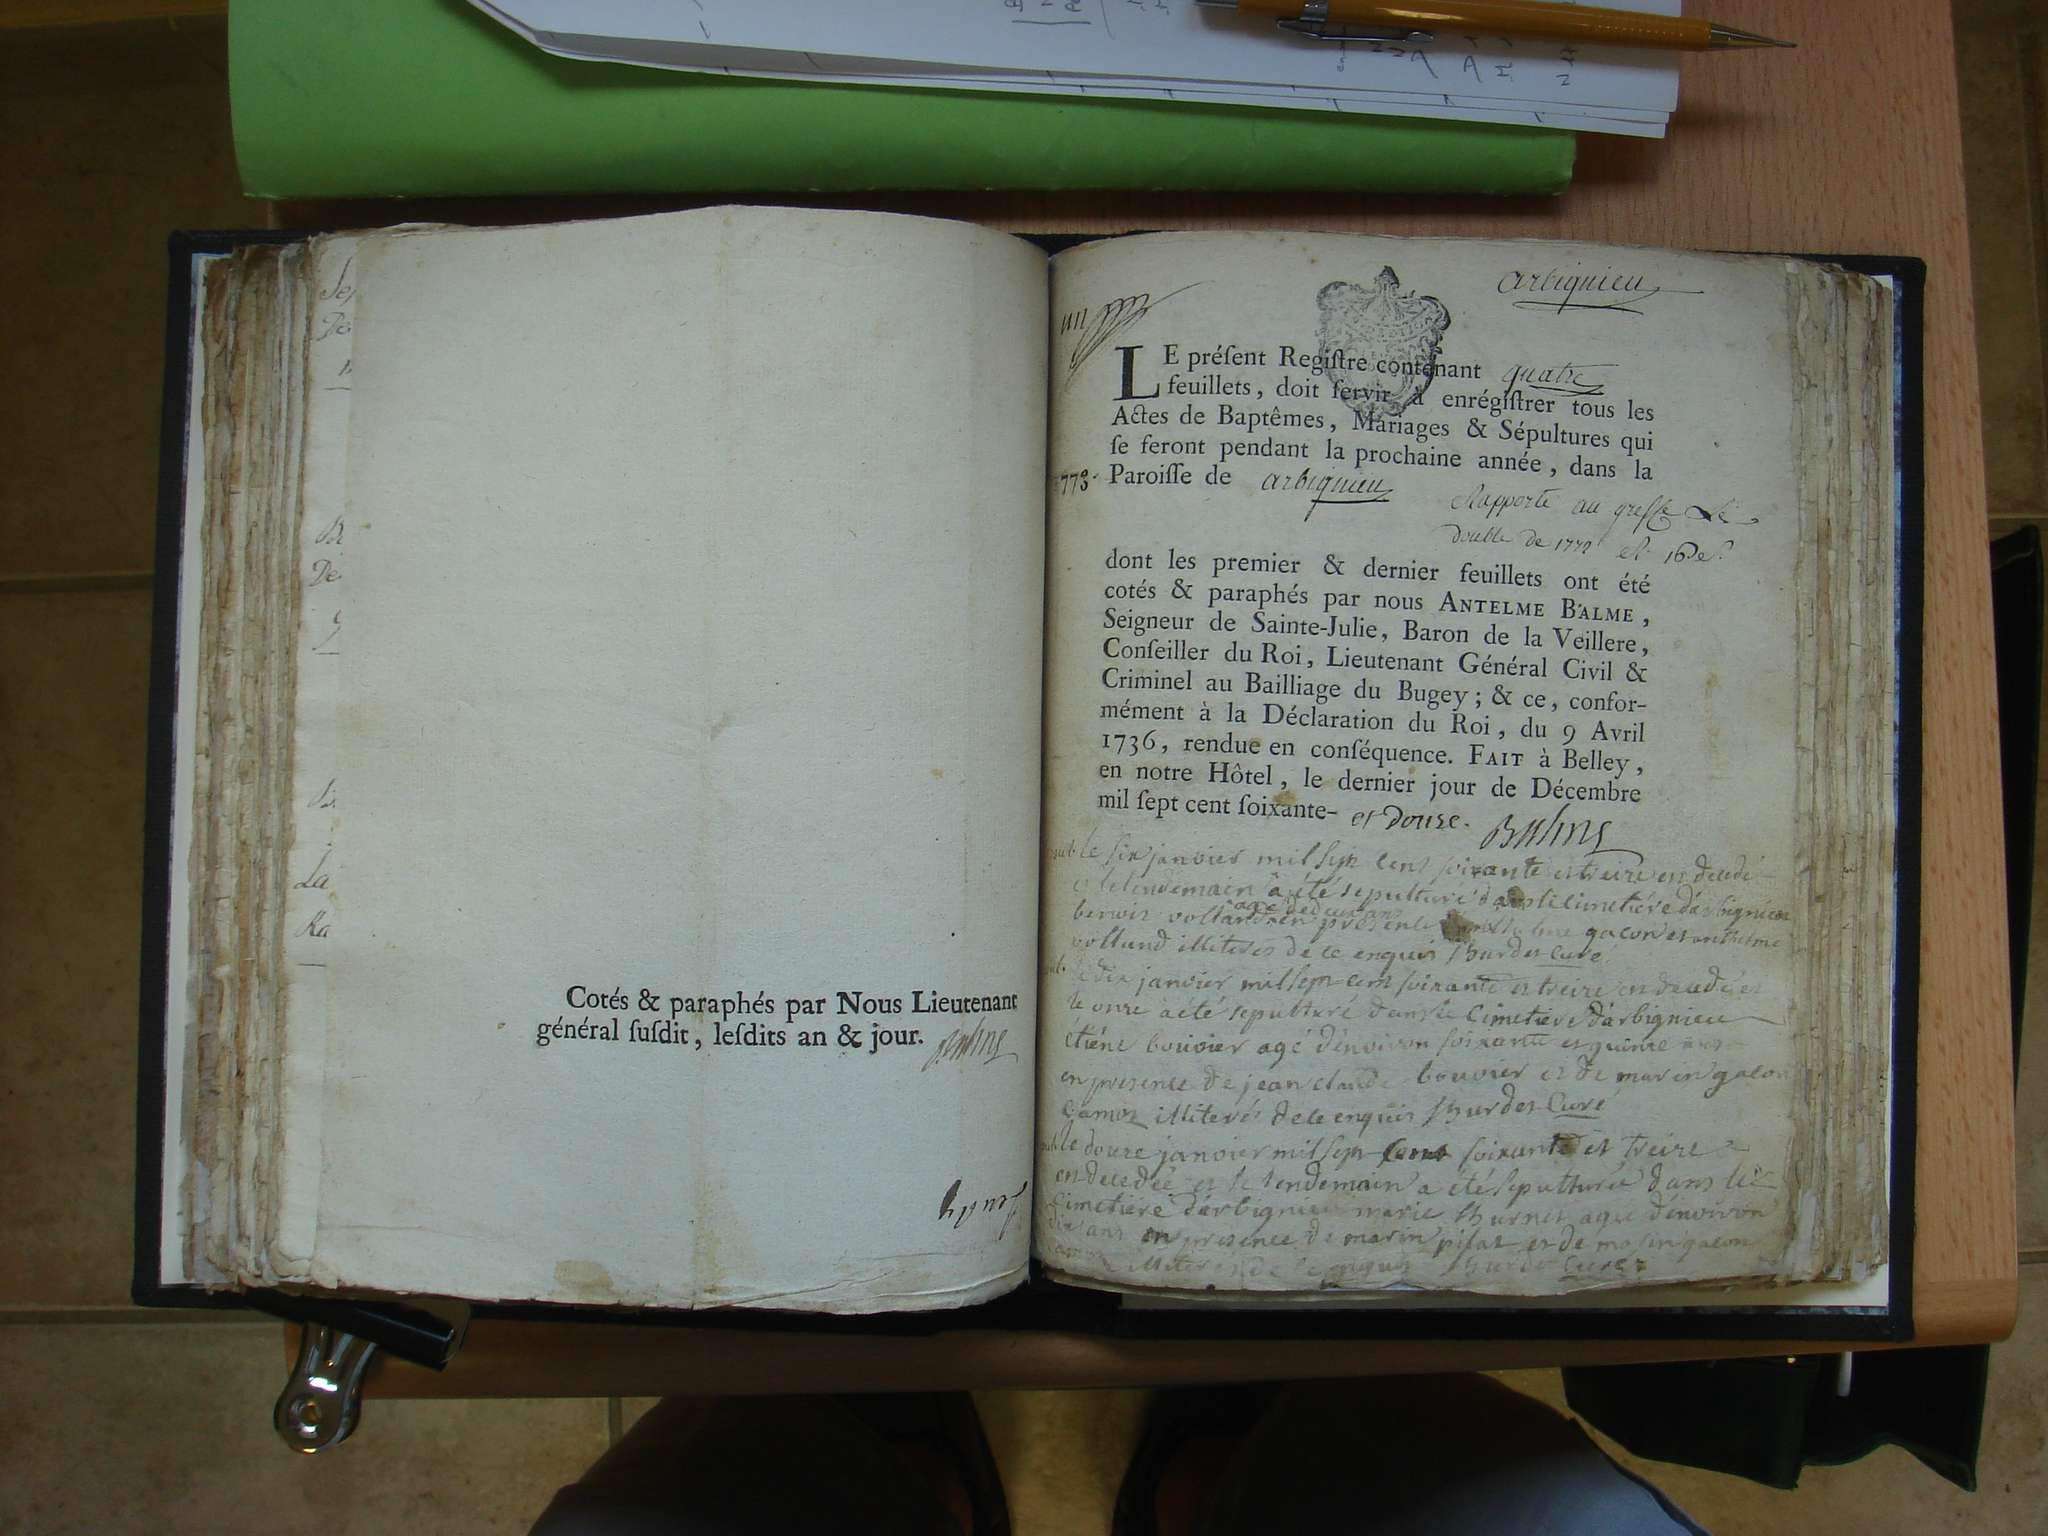 Cotés & paraphés par Nous Lieutenant
général ſuſdit, leſdits an & jour. Balme
arbignieu
un
LE préſent Regiſtre contenant quatre
feuillets, doit ſervir à enrégiſtrer tous les
Actes de Baptêmes, Mariages & Sépultures qui
ſe feront pendant la prochaine année, dans la
1773. Paroiſſe de arbignieu
Rapporté au greffe le
double de 1772
dont les premier & dernier feuillets ont été
cotés & paraphés par nous ANTELME BALME,
Seigneur de Sainte-Julie, Baron de la Veillere,
Conſeiller du Roi, Lieutenant Général Civil &
Criminel au Bailliage du Bugey; & ce, confor-
mément à la Déclaration du Roi, du 9 Avril
1736, rendue en conſéquence. FAIT à Belley,
en notre Hôtel, le dernier jour de Décembre
mil ſept cent ſoixante- et douze. Balme
le six janvier mil sept cent soixante et treize est decedé
et le lendemain a été sepulturé dans le cimetiére d'arbignieu
age de deux ans
benoit volland en presence gacon et anthelme
volland illiterés de ce enquis hurdet curé
le dix janvier mil sept cent soixante et treize est decedé et
le onze a été sepulturé dans le cimetiere d'arbignieu
etiéne bouvier agé d'environ soixante et quinze ans
en presence de jean claude bouvier et de marin gacon
illiterés de ce enquis hurdet curé
le douze janvier mil sept cent soixante et treize
est decedée et le lendemain a été sepulturée dans le
cimetiere d'arbignieu marie agée d'environ
dix ans en presence de marin pilat et de gacon
illiterés de ce enquis hurdet curé